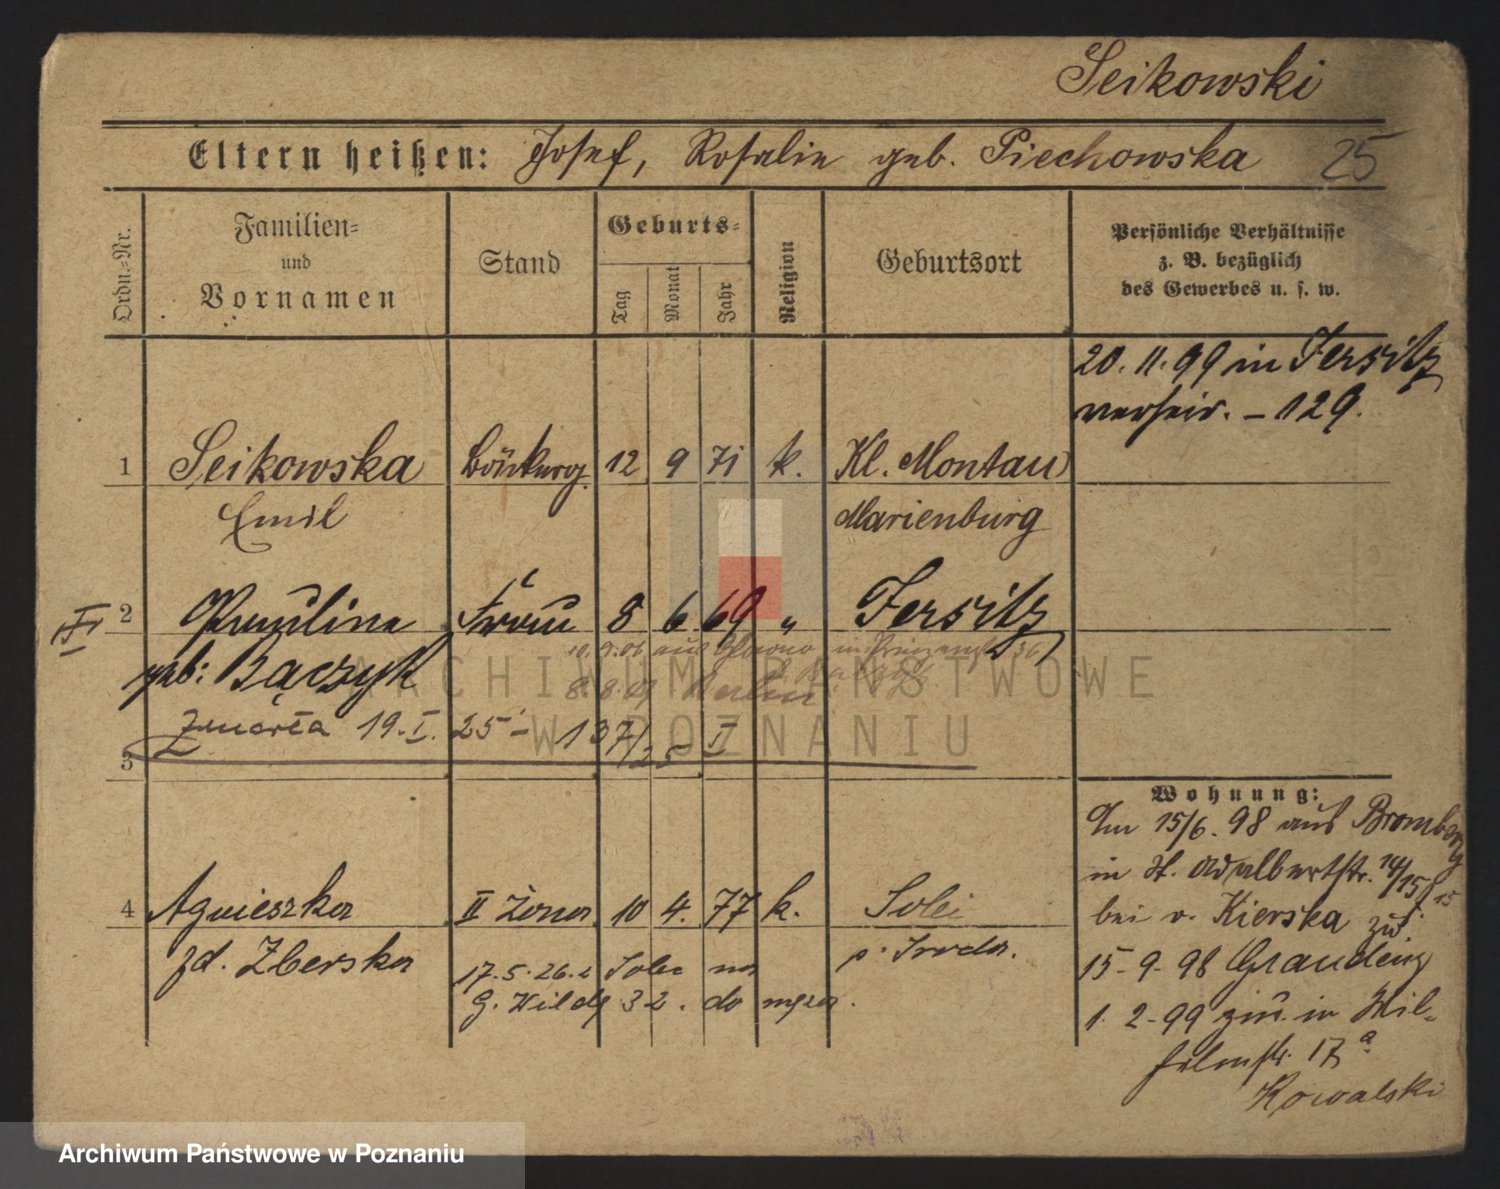 Seikowski
Eltern heißen: Josef, Rosalie geb. Piechowska 25
Ordn.-Nr.
Familien-
und
Vornamen
Stand
Geburts-
Tag
Monat
Jahr
Religion
Geburtsort
Persönliche Verhältnisse
z. B. bezüglich
des Gewerbes u. s. w.
20. 11. 99 in Jersitz
verheir. - 129.
1 Seikowska 12 9 71 k. Kl. Montau
Emil Marienburg
II
2 Pauline Frau 8 6 69 " Jersitz
geb: Bączyk
10.9.06 aus in
8.8.07 Berlin
Zmarła 19. I. 25 - 137/25 II
3
Wohnung:
Am 15/6. 98 aus Bromberg
in St. Adalbertstr. 14/15
bei v. Kierska zu
15-9-98 Graudenz
1. 2-99 zu. in Wil-
helmstr. 17 a.
Kowalski
4 Agnieszka II żona 10 4. 77 k. Solec
zd. Zberska p. Środa.
17.5.26. z Solec na
G. Wildę 32. do męża.
ARCHIWUM PAŃSTWOWE
W POZNANIU
Archiwum Państwowe w Poznaniu